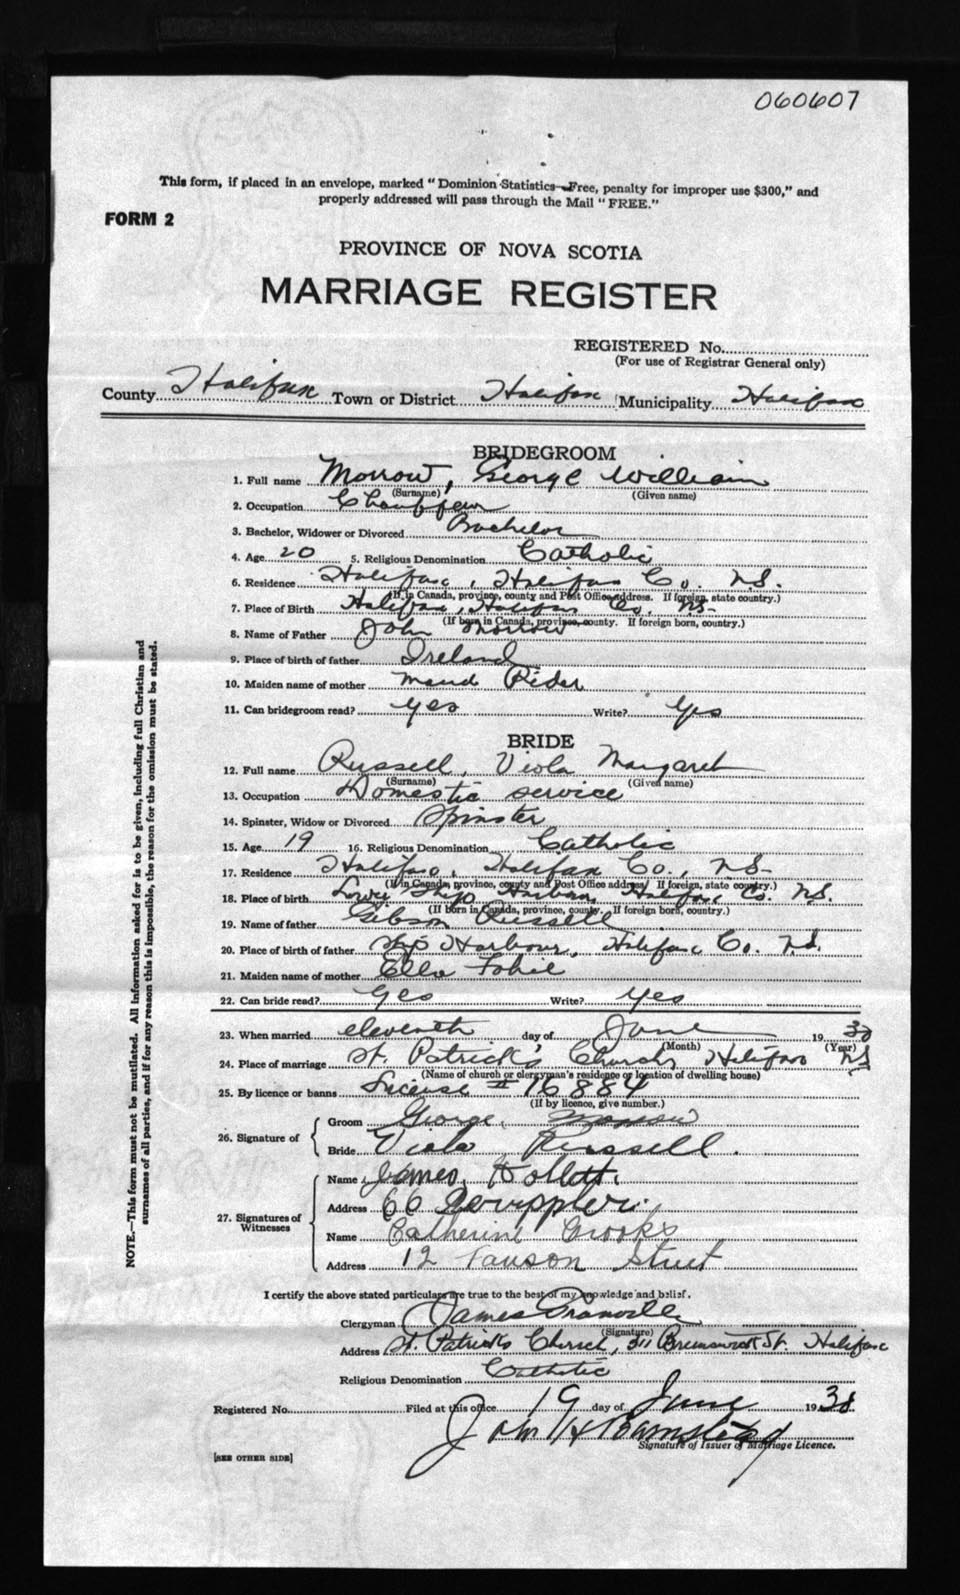 060607
This form, if placed in an envelope, marked "Dominion Statistics—Free, penalty for improper use $300," and
properly addressed will pass through the Mail "FREE."
FORM 2
PROVINCE OF NOVA SCOTIA
MARRIAGE REGISTER
REGISTERED No.
(For use of Registrar General only)
County Halifax Town or District Halifax Municipality Halifax
BRIDEGROOM
1. Full name Morrow, George William
(Surname) (Given name)
2. Occupation Chauffeur
3. Bachelor, Widower or Divorced Bachelor
4. Age 20 5. Religious Denomination Catholic
6. Residence Halifax, Halifax Co. N.S.
(If in Canada, province, county and Post Office address. If foreign, state country.)
7. Place of Birth Halifax, Halifax Co. N.S.
(If born in Canada, province, county. If foreign born, country.)
8. Name of Father John Morrow
9. Place of birth of father Ireland
10. Maiden name of mother Maud Rider
11. Can bridegroom read? yes Write? Yes
BRIDE
12. Full name Russell, Viola Margaret
(Surname) (Given name)
13. Occupation Domestic service
14. Spinster, Widow or Divorced Spinster
15. Age 19 16. Religious Denomination Catholic
17. Residence Halifax, Halifax Co., N.S.
(If in Canada, province, county and Post Office address. If foreign, state country.)
18. Place of birth Ship Harbour, Halifax Co. N.S.
(If born in Canada, province, county. If foreign born, country.)
19. Name of father Gibson Russell
20. Place of birth of father Ship Harbour, Halifax Co. N.S.
21. Maiden name of mother Ella
22. Can bride read? Yes Write? Yes
23. When married eleventh day of June 1930
(Month) (Year)
24. Place of marriage St. Patrick's Church, Halifax NS
(Name of church or clergyman's residence or location of dwelling house)
25. By licence or banns License # 16884
(If by licence, give number.)
26. Signature of
Groom George Morrow
Bride Viola Russell.
27. Signatures of Witnesses
Name James
Address 66
Name Catherine Crooks
Address 12 Street
I certify the above stated particulars are true to the best of my knowledge and belief.
Clergyman James
(Signature)
Address St. Patrick's Church, 311 Brunswick St. Halifax
Religious Denomination Catholic
Registered No. Filed at this office 19 day of June 1930
John H Barnstead
Signature of Issuer of Marriage Licence.
[SEE OTHER SIDE]
NOTE.—This form must not be mutilated. All information asked for is to be given, including full Christian and
surnames of all parties, and if for any reason this is impossible, the reason for the omission must be stated.